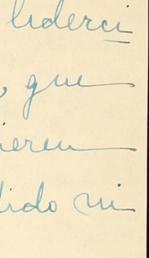 liderci
, que
ieren
dido ni